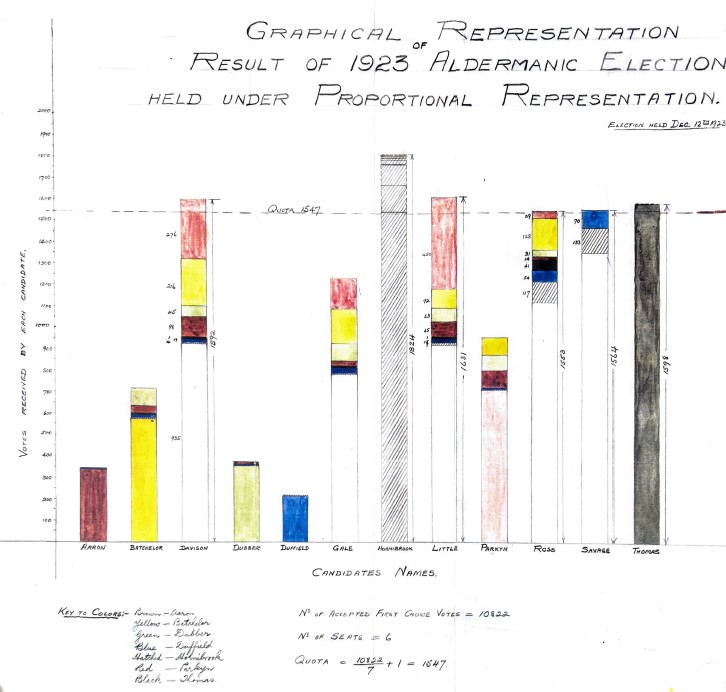 GRAPHICAL REPRESENTATION
OF
RESULT OF 1923 ALDERMANIC ELECTION
HELD UNDER PROPORTIONAL REPRESENTATION.
ELECTION HELD DEC. 12TH 1923
VOTES RECEIVED BY EACH CANDIDATE.
2000
1900
1800
1700
1600
1500
1400
1300
1200
1100
1000
900
800
700
600
500
400
300
200
100
QUOTA 1547
276
216
935
1592
1824
1631
117
1553
70
1564
1598
AARON BATCHELOR DAVISON DUBBER DUFFIELD GALE HORNIBROOK LITTLE PARKYN ROSS SAVAGE THOMAS
CANDIDATES NAMES.
KEY TO COLORS:- Brown - Aaron
Yellow - Batchelor
Green - Dubber
Blue - Duffield
Hatched - Hornibrook
Red - Parkyn
Black - Thomas
No OF ACCEPTED FIRST CHOICE VOTES = 10822
No OF SEATS = 6
QUOTA = 10822/7 + 1 = 1547.